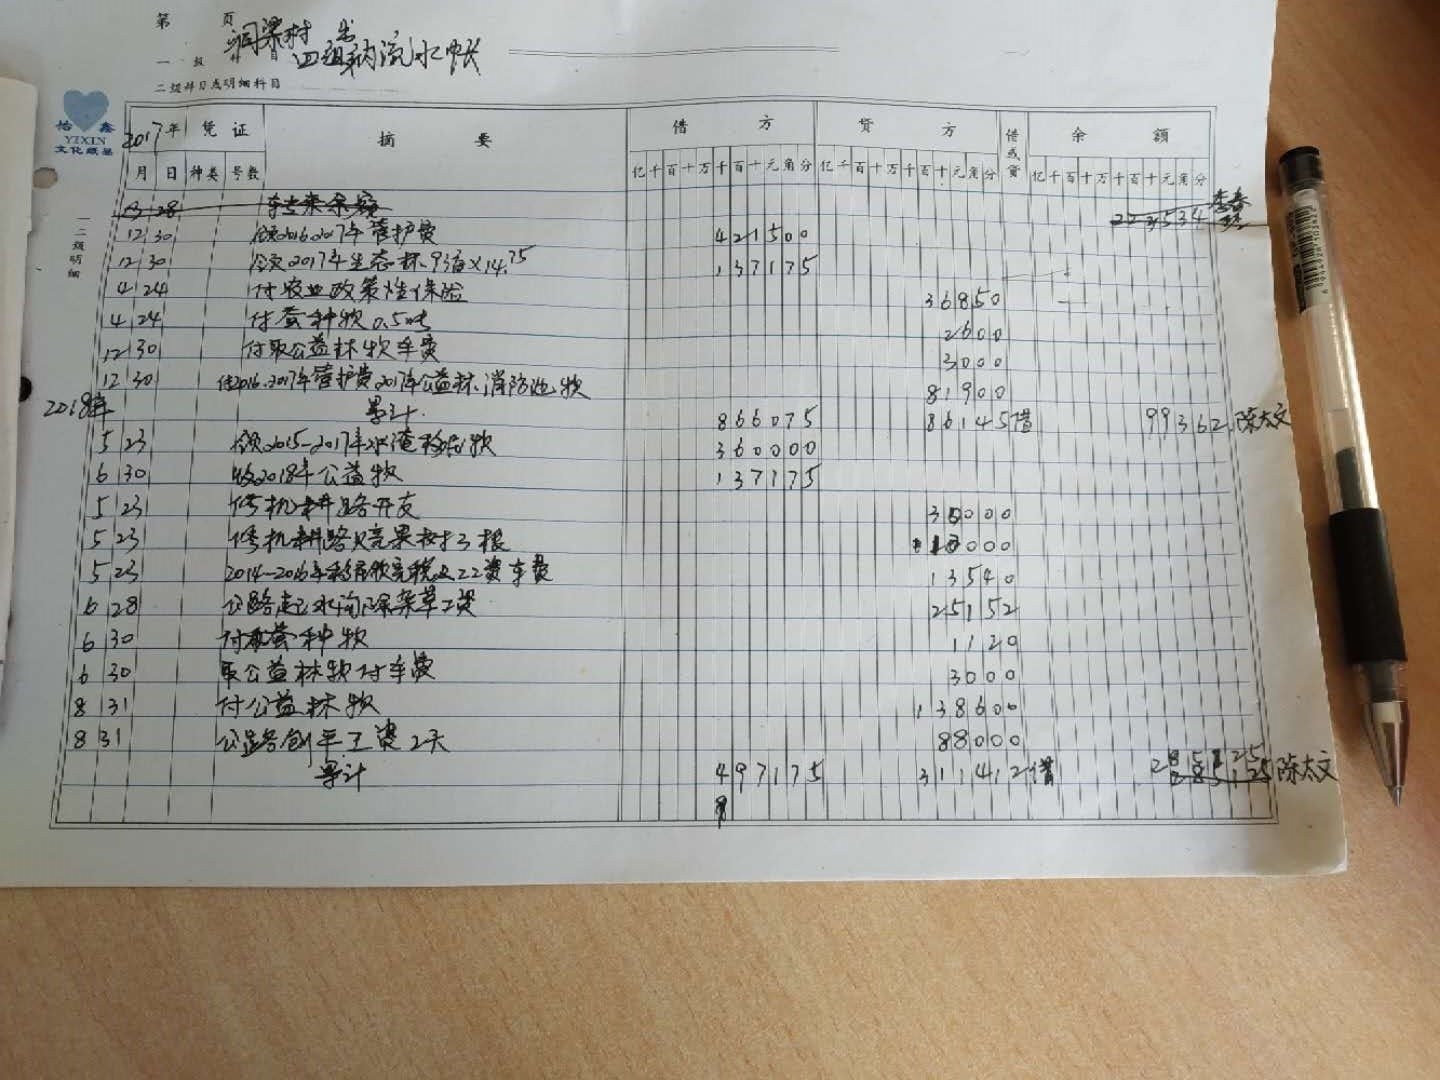 第 页
洞梁村
一级科目 四组纳流水帐
二级科目或明细科目
怡鑫
YIXIN
文化纸品
一二级明细
2017年 凭证 摘要 借方 贷方 借或贷 余额
月 日 种类 号数 亿千百十万千百十元角分 亿千百十万千百十元角分 亿千百十万千百十元角分
3 28 余额 222534 李春
12 30 领2016.2017年管护费 421500
12 30 领2017年生态林93亩×14.75 137175
4 24 付农业政策性保险 36850
4 24 付蚕种款0.5 2600
12 30 付取公益林款车费 3000
12 30 付2016.2017年管护费2017年公益林.消防池款 81900
2018年 累计. 866075 86145 借 99362 陈太文
5 23 领2015-2017年水淹移民款 360000
6 30 收2018年公益款 137175
5 23 修机耕路开支 30000
5 23 修机耕路赔果树3根 10000
5 23 2014-2016年移民领完税及工资车费 13540
6 28 公路边水沟除杂草工资 25152
6 30 付蚕种款 1120
6 30 取公益林款付车费 3000
8 31 付公益林款 138600
8 31 公路创平工资2天 88000
累计 497175 311412 借 285125 陈太文